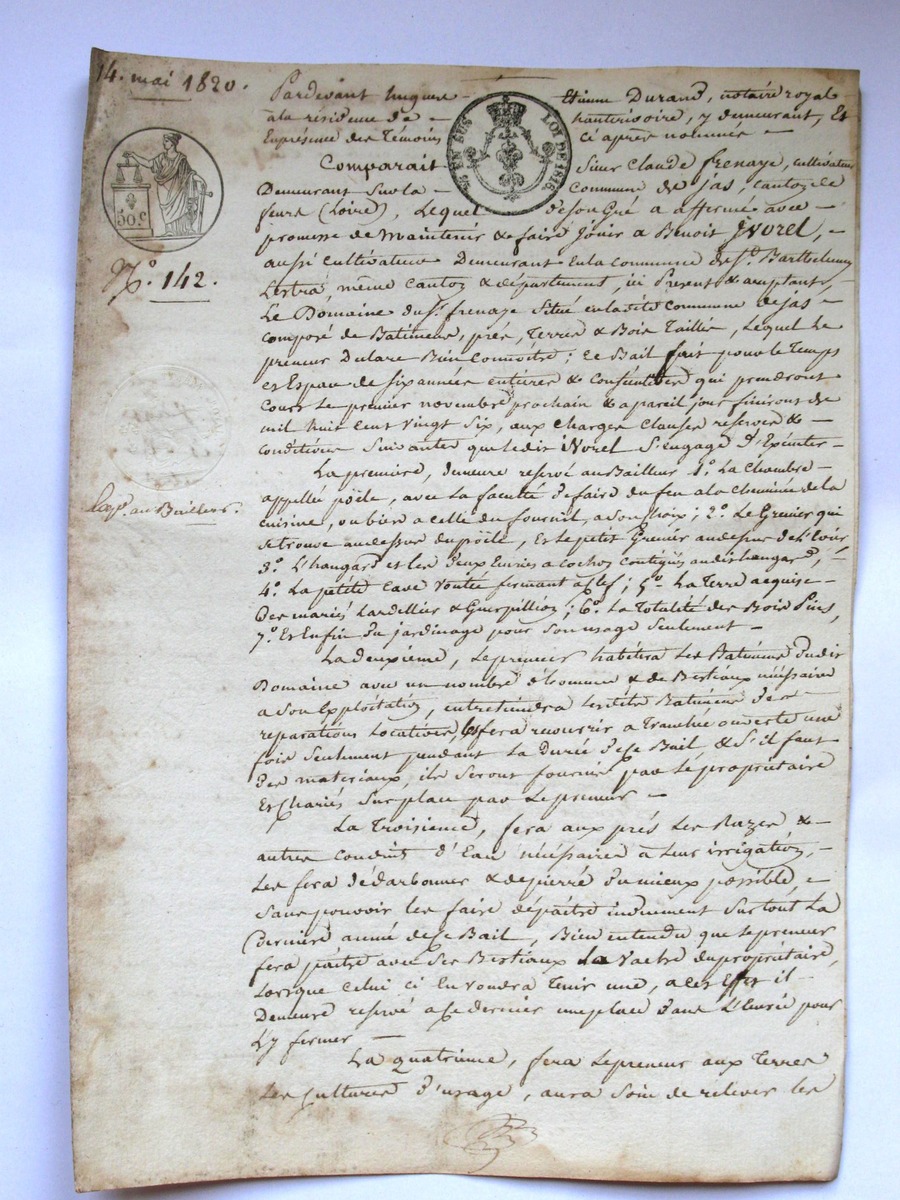 14. mai 1820.
Pardevant hugues Etienne Durand, notaire royal
à la résidence de hauterivoire, y demeurant, Et
En présence des Témoins ci après nommés —
Comparait Sieur Claude frenaye, cultivateur
Demeurant Sur la commune de jas, canton de
feurs (Loire), Lequel de son Gré a affermé avec
promesse de Maintenir & faire jouir a Benoit jvorel, —
aussi cultivateur Demeurant En la commune de St. Barthelemy
Lestra, même canton & département, ici Présent & acceptant,
Le Domaine du Sr. frenaye Situé en la dite commune de jas —
composé de Batimens, prés, Terres & Bois Taillis, Lequel Le
preneur Declare Bien Connoitre ; Ce Bail fait pour le Temps
et Espace de Six années entières & Consécutives qui prendront
Cours Le premier novembre prochain & a pareil jour finiront de
mil huit cent vingt Six, aux Charges Clauses reserves &
conditions Suivantes que le dit jvorel S'engage D'Exécuter —
La première, demeure reservé au Bailleur 1o. La Chambre —
appellée poële, avec La faculté de faire du feu a la cheminée de la
cuisine, ou bien a celle du fournil, a Son choix ; 2o. Le Grenier qui
Se trouve au dessus du poële, et Le petit Grenier au dessus de L'Evier
3o. L'hangard et les deux Ecuries a cochons contigues au dit hangard, —
4o. La petite Cave Voutée fermant a clef ; 5o. La Terre acquise —
Des mariés Lardellier & Guerpillion ; 6o. La Totalité des Bois Pins,
7o. Et Enfin du jardinage pour Son usage Seulement —
La deuxième, Le preneur habitera Les Batimens du dit
Domaine avec un nombre d'homme & de Bestiaux nécéssaire
a Son Exploitation, entretiendra Lesdits Batimens des —
reparations Locatives, les fera recouvrir a Tranchée ouverte une
fois Seulement pendant La Durée de ce Bail, & S'il faut
Des materiaux, ils Seront fournis par Le propriétaire
Et Chariés Sur place par Le preneur —
La Troisième, fera aux prés Les Razes & —
autres Conduits d'Eau nécéssaires à Leur irrigation, —
Les fera dédarbonner & depierré du mieux possible, —
Sans pouvoir les faire dépaitre induement Surtout La
Derniere année de ce Bail, Bien entendu que Le preneur
fera paitre avec Ses Bestiaux La Vache du propriétaire,
Lorsque Celui ci En voudra Tenir une, a cet Effet il —
Demeure reservé a ce dernier une place Dans L'Ecurie pour
L'y fermer —
La quatrieme, fera Le preneur aux Terres
Les Cultures d'usage, aura Soin de relever les
50 c.
No. 142.
Exp. au Bailleur.
1/20 EN SUS LOI DE 1816.